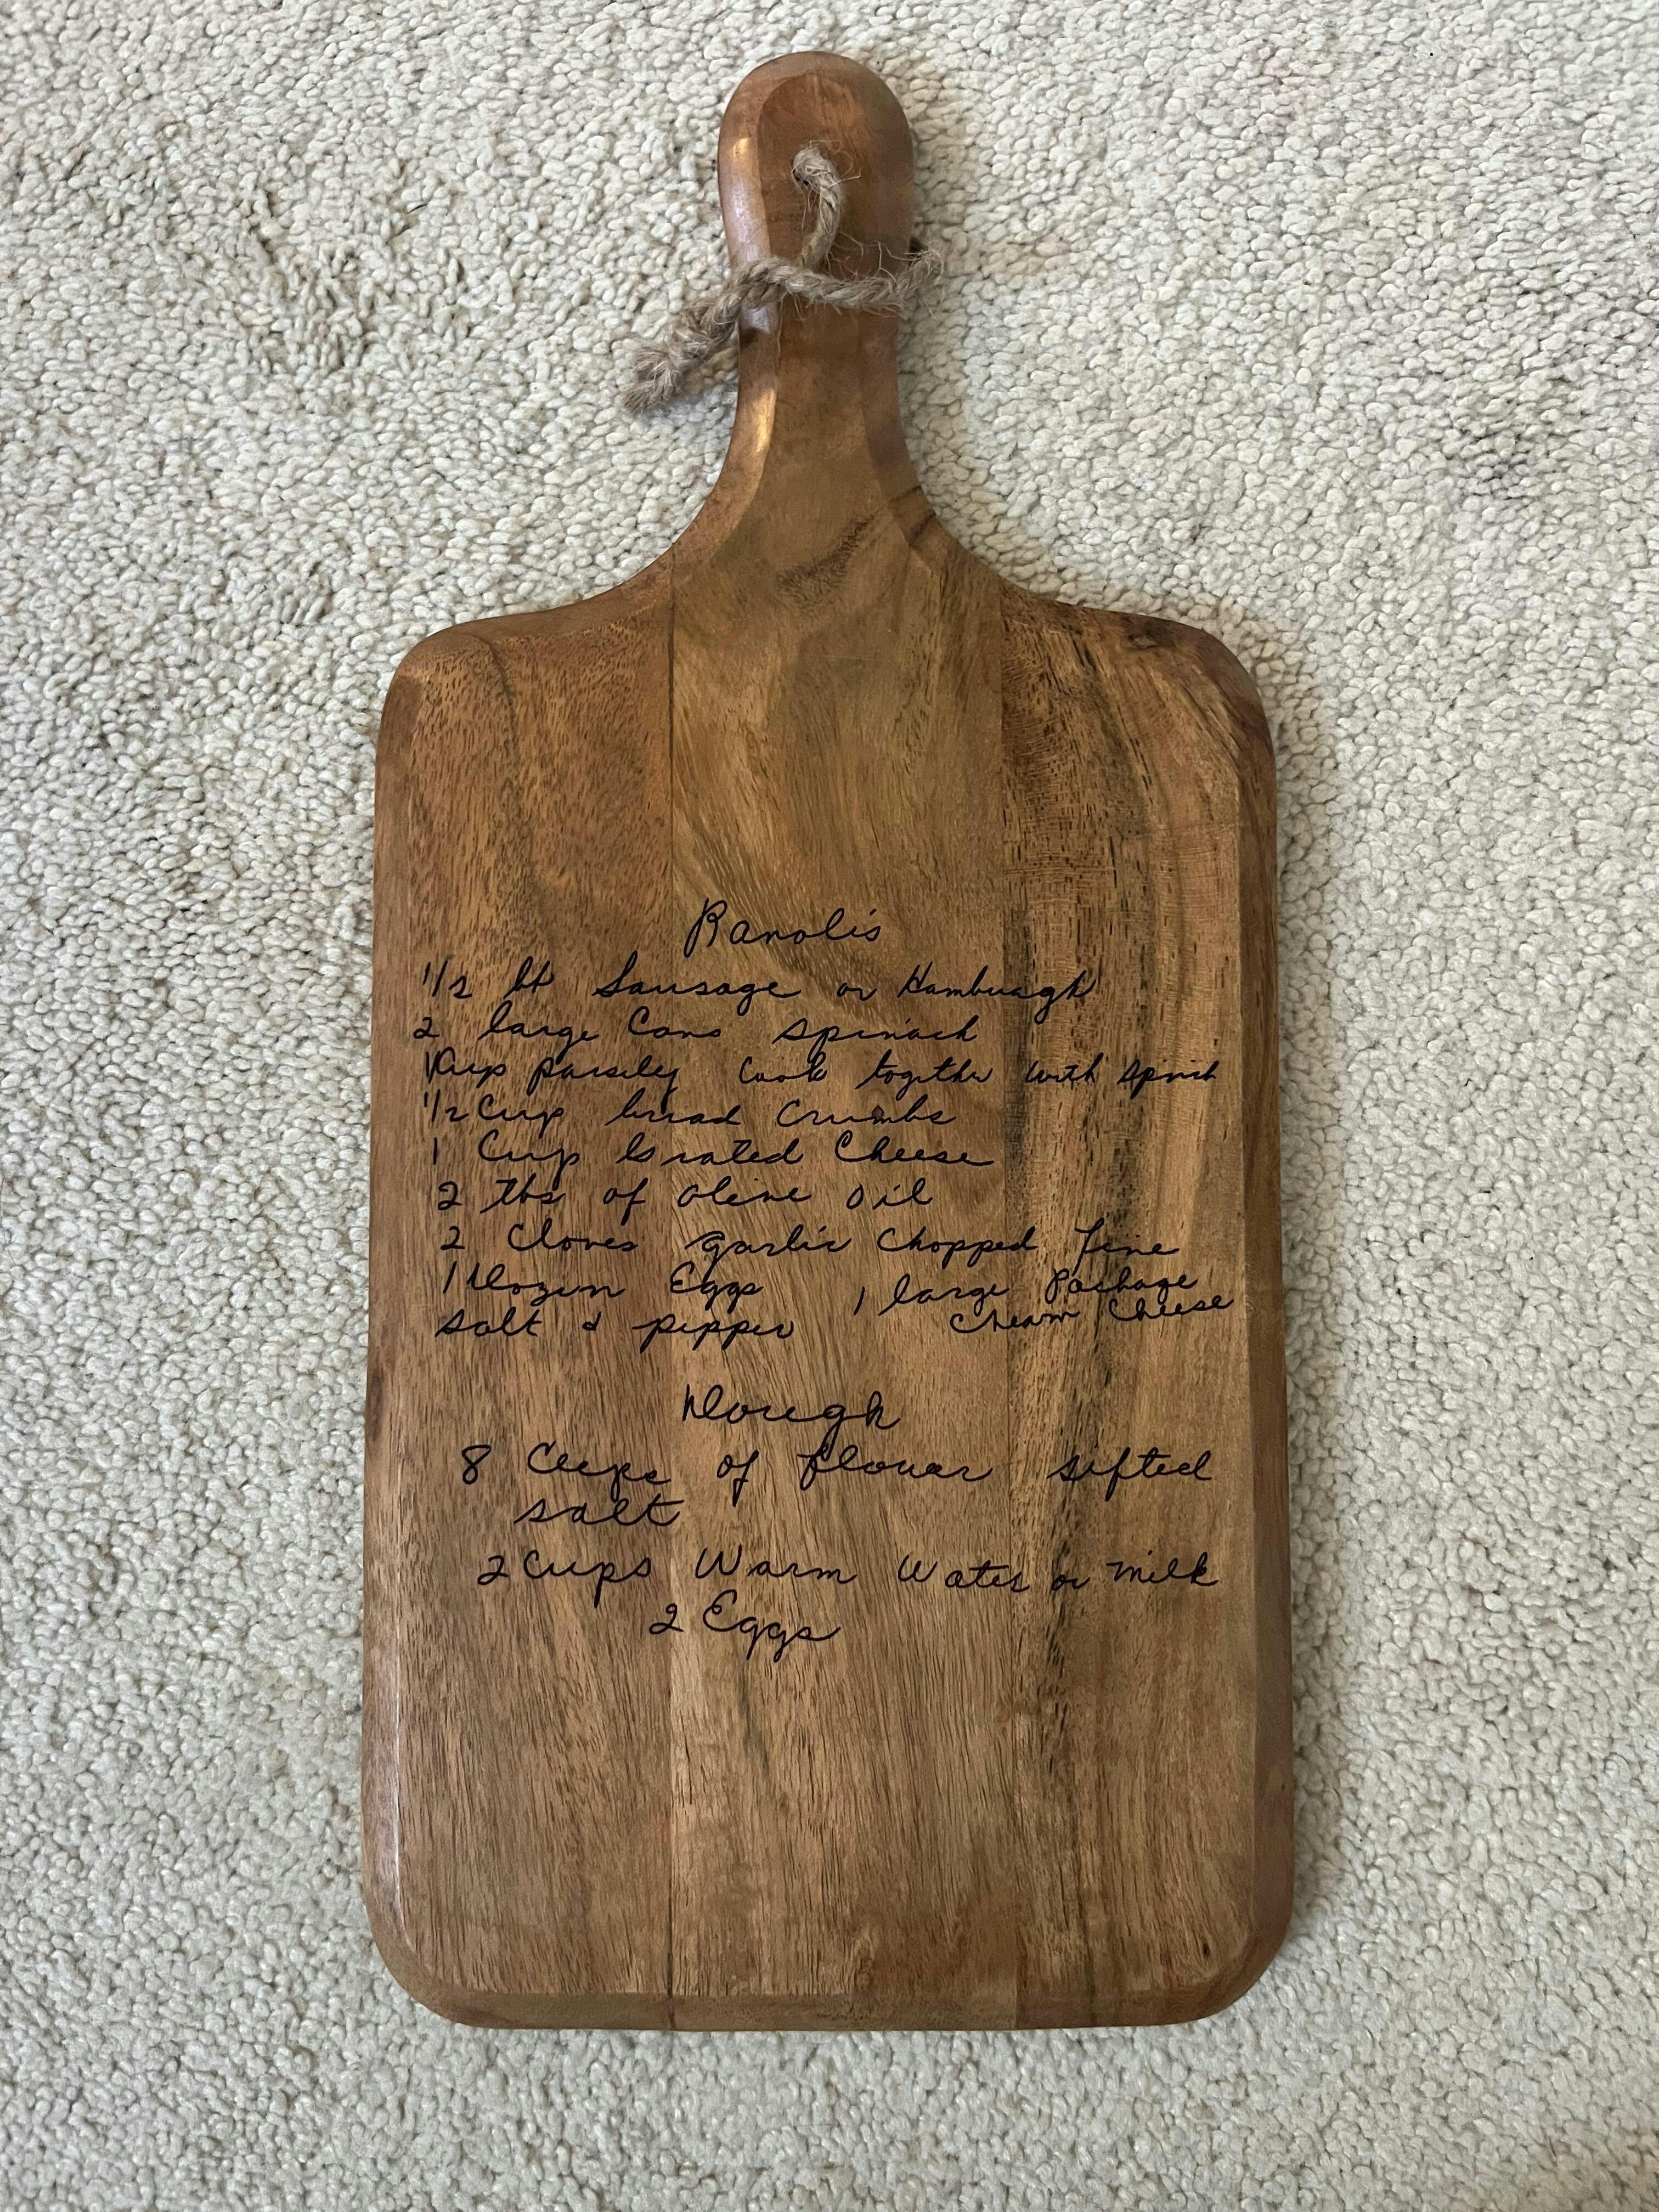 Raviolis
1/2 lb Sausage or Hamburgh
2 large Cans spinach
1 Cup parsley Cook together with spinach
1/2 Cup bread Crumbs
1 Cup Grated Cheese
2 tbs of olive oil
2 Cloves garlic Chopped fine
1 Dozen Eggs 1 large Package
salt & pepper Cream Cheese
Dough
8 Cups of flour sifted
salt
2 Cups Warm Water or Milk
2 Eggs